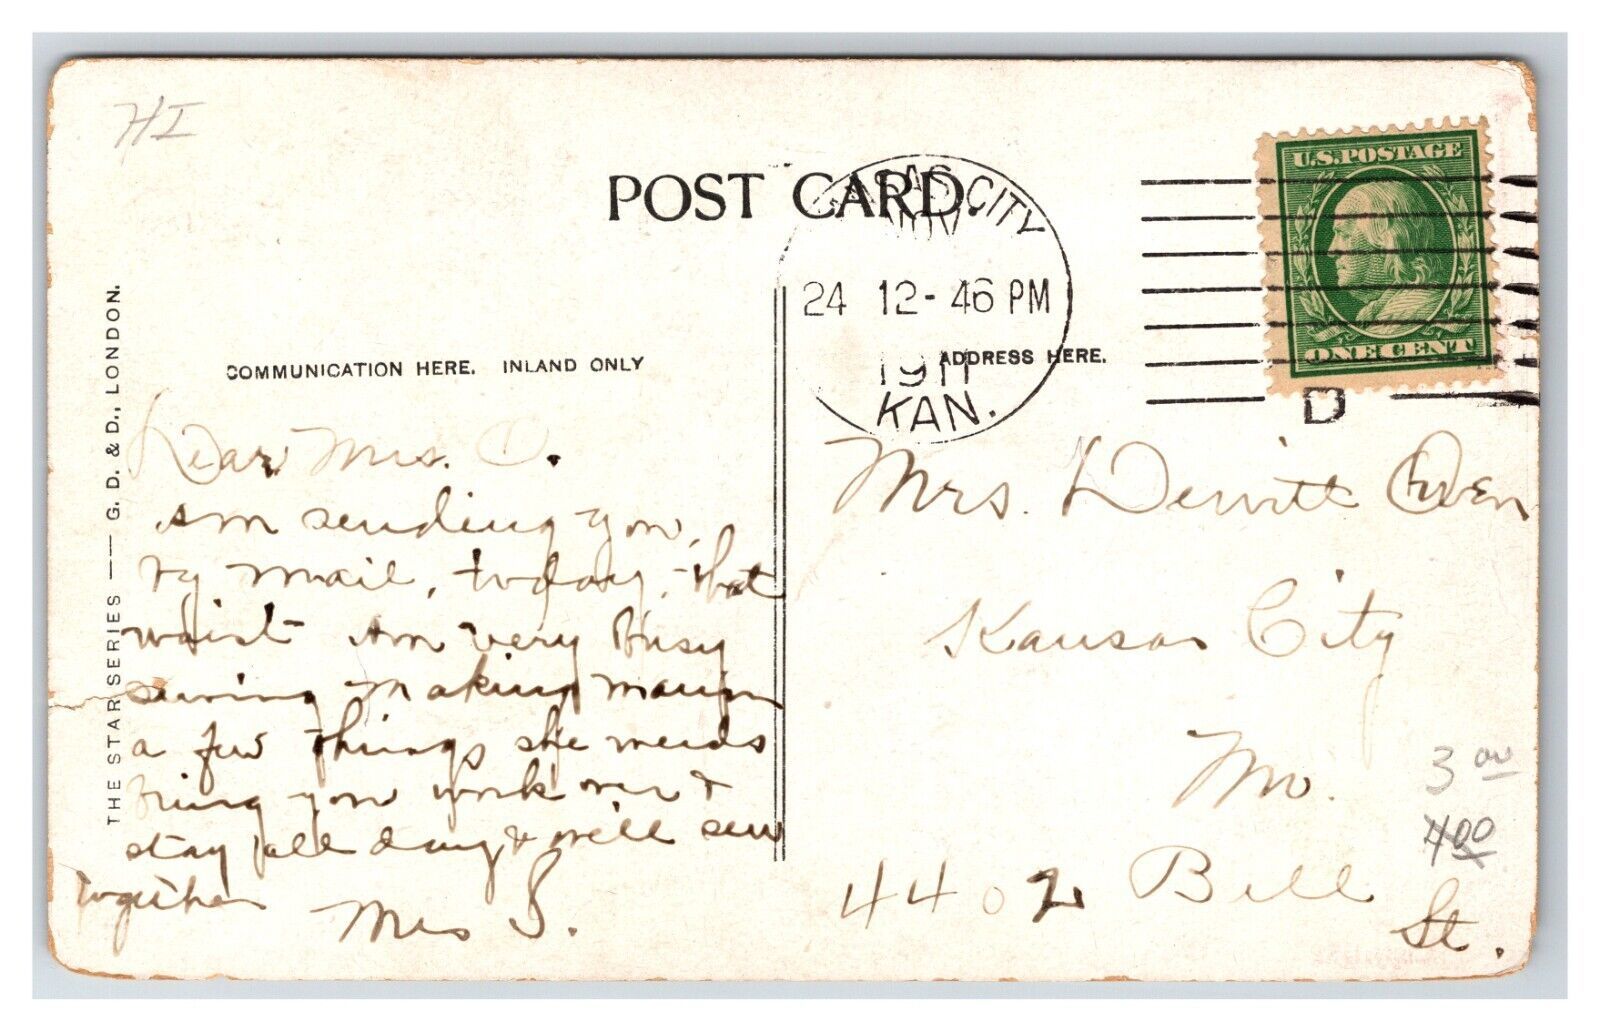 HI
POST CARD.
KANSAS CITY
24 12-46 PM
1911
KAN.
U.S. POSTAGE
ONE CENT
D
THE STAR SERIES — G. D. & D., LONDON.
COMMUNICATION HERE. INLAND ONLY
ADDRESS HERE.
Dear Mrs. O.
Am sending you,
by mail, today, that
waist Am very Busy
sewing making
a few things she needs
Bring your work over &
stay all day & will sew
together
Mrs S.
Mrs. Dewitt Owen
Kansas City
Mo.
3 00
4 00
4402 Bell
St.